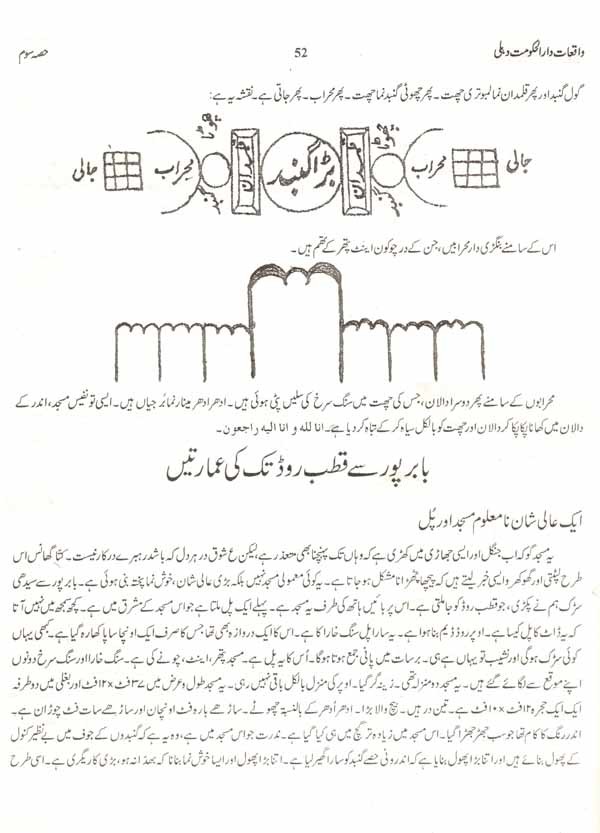 واقعات دارالحکومت دہلی
52
حصہ سوم
گول گنبد اور پھر قلمدان نما لمبوتری چھت۔ پھر چھوٹی گنبد نما چھت۔ پھر محراب۔ پھر جاتی ہے۔ نقشہ یہ ہے:
جالی محراب چھوٹا گنبد قلمدان بڑا گنبد قلمدان چھوٹا گنبد محراب جالی
اس کے سامنے بنگڑی دار محرابیں، جن کے در چوکون اینٹ پتھر کے تھم ہیں۔
محرابوں کے سامنے پھر دوسرا دالان، جس کی چھت میں سنگ سرخ کی سلیں پٹی ہوئی ہیں۔ ادھر ادھر مینار نما بُرجیاں ہیں۔ ایسی تو نفیس مسجد، اندر کے
دالان میں کھانا پکا پکا کر دالان اور چھت کو بالکل سیاہ کر کے تباہ کر دیا ہے۔ انا للہ و انا الیہ راجعون۔
بابر پور سے قطب روڈ تک کی عمارتیں
ایک عالی شان نامعلوم مسجد اور پُل
یہ مسجد گو کہ اب جنگل اور ایسی جھاڑی میں کھڑی ہے کہ وہاں تک پہنچنا بھی متعذر ہے، لیکن ع شوق در ہر دل کہ باشد رہبرے درکار نیست۔ کتا گھانس اس
طرح لپٹتی اور گوکھرو ایسی خبر لیتے ہیں کہ پیچھا چھڑانا مشکل ہو جاتا ہے۔ یہ کوئی معمولی مسجد نہیں بلکہ بڑی عالی شان، خوش نما پختہ بنی ہوئی ہے۔ بابر پور سے سیدھی
سڑک ہم نے پکڑی، جو قطب روڈ کو جا ملتی ہے۔ اس پر بائیں ہاتھ کی طرف یہ مسجد ہے۔ پہلے ایک پل ملتا ہے جو اس مسجد کے مشرق میں ہے۔ کچھ سمجھ میں نہیں آتا
کہ یہ ڈاٹ کا پل کیسا ہے۔ اوپر روڈ ڈیم بنا ہوا ہے۔ یہ سارا پل سنگ خارا کا ہے۔ اس کا ایک دروازہ بھی تھا جس کا صرف ایک اونچا سا پاکھا رہ گیا ہے۔ کبھی یہاں
کوئی سڑک ہوگی اور نشیب تو یہاں ہے ہی۔ برسات میں پانی جمع ہوتا ہوگا۔ اُس کا یہ پل ہے۔ مسجد پتھر، اینٹ، چونے کی ہے۔ سنگ خارا اور سنگ سرخ دونوں
اپنے موقع سے لگائے گئے ہیں۔ یہ مسجد دو منزلہ تھی۔ زینہ گر گیا۔ اوپر کی منزل بالکل باقی نہیں رہی۔ یہ مسجد طول و عرض میں ۳۷ فٹ×۱۲ فٹ اور بغلی میں دو طرفہ
ایک ایک حجرہ ۱۲ فٹ×۱۰ فٹ ہے۔ تین در ہیں۔ بیچ والا بڑا۔ ادھر اُدھر کے بالنسبتہ چھوٹے۔ ساڑھے بارہ فٹ اونچان اور ساڑھے سات فٹ چوڑان ہے۔
اندر رنگ کا کام تھا جو سب جھڑ جھڑا گیا۔ اس مسجد میں زیادہ تر گچ میں ہی کیا گیا ہے۔ ندرت جو اس مسجد میں ہے، وہ یہ ہے کہ گنبدوں کے جوف میں بے نظیر کنول
کے پھول بنائے ہیں اور اتنا بڑا پھول بنایا ہے کہ اندرونی حصے گنبد کو سارا گھیر لیا ہے۔ اتنا بڑا پھول اور ایسا خوش نما بنانا کہ بھدا نہ ہو، بڑی کاریگری ہے۔ اسی طرح